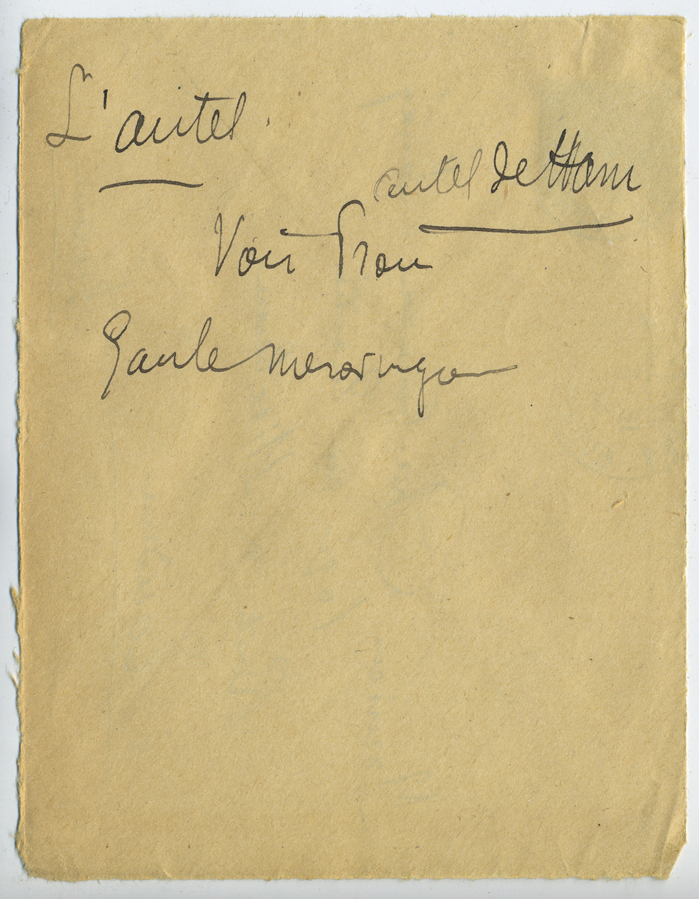 L'autel.
autel de Ham
Voir Prou
Gaule merovingie